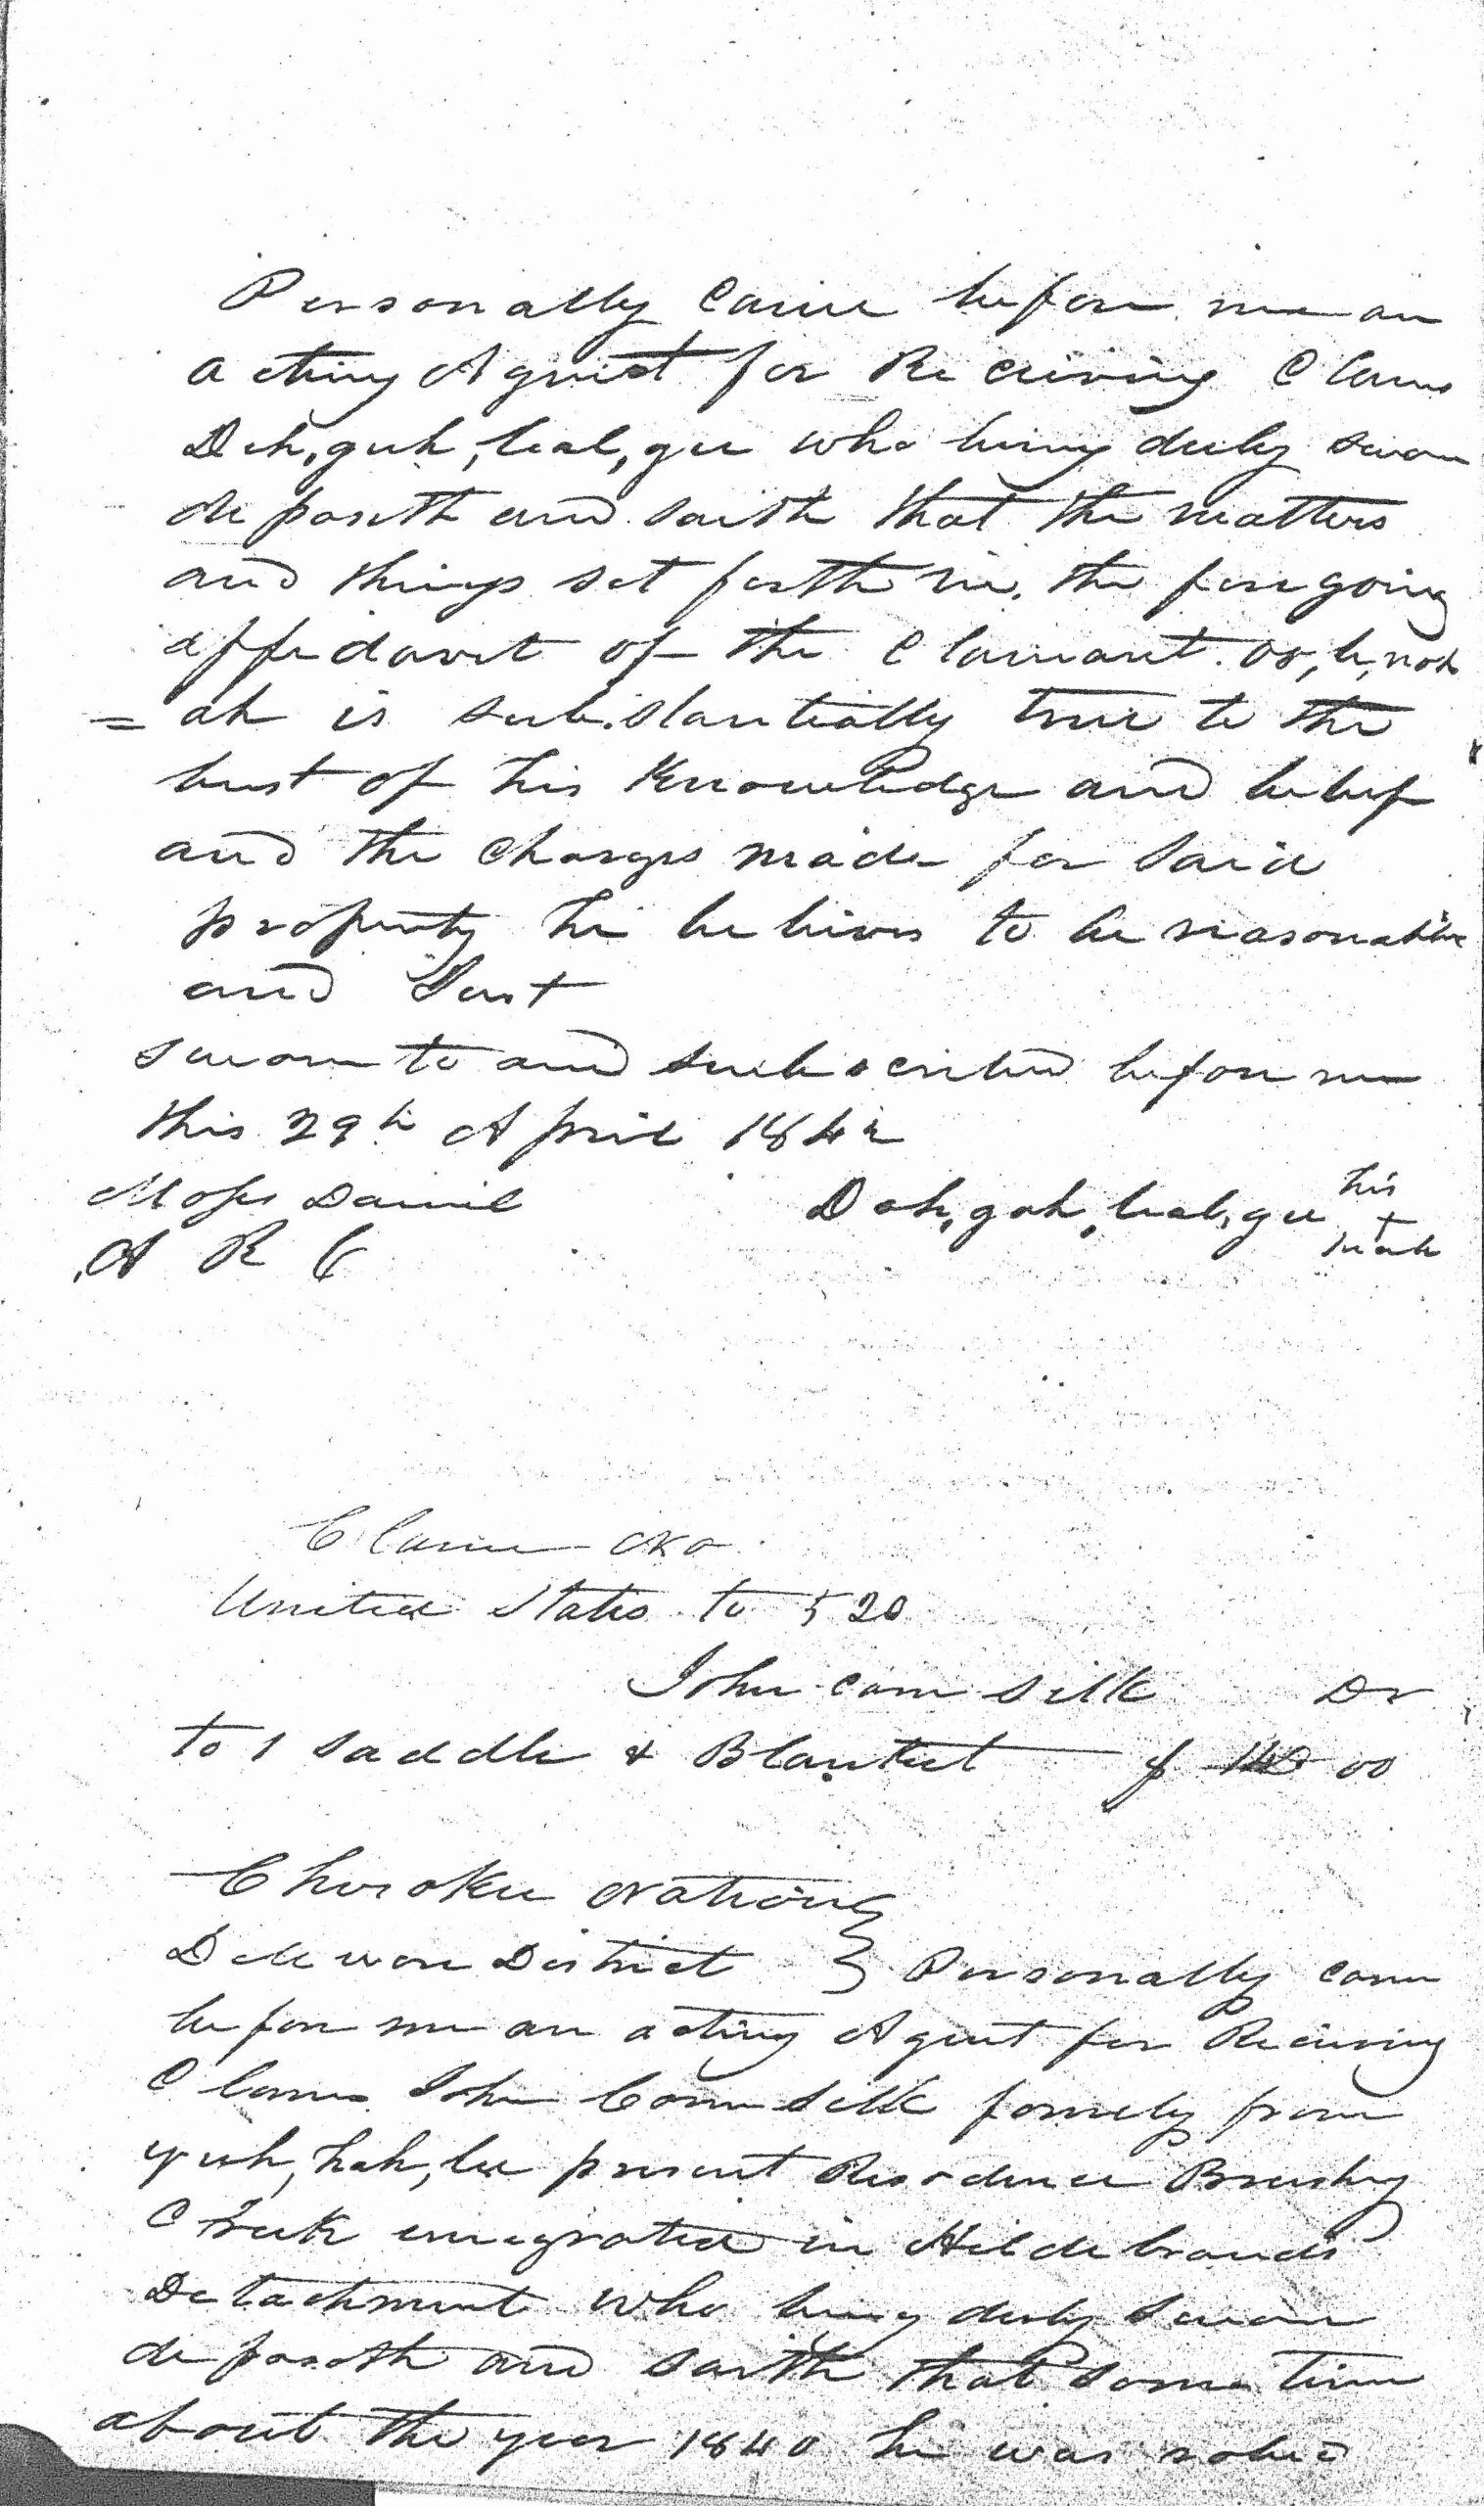 Personally Came before me an
acting Agent for Receiving Claims
Dch,guh,leal,gee who being duly sworn
deposeth and saith that the matters
and things set forth in the foregoing
affidavit of the Claimant
= ah is substantially true to the
best of his Knowledge and belief
and the charges made for said
property he believes to be reasonable
and Just
sworn to and subscribed before me
this 29th April 1842
Moses Daniel Dah,gah,leal,gee his + mark
A R C
Claim No
United States to 520
John corn silk Dr
to 1 saddle & Blanket $ 00
Cherokee Nation
Deleware District } Personally came
before me an acting Agent for Receiving
Claims John Corn Silk formely from
present Residence Brushy
Creek emigrated in Hildebrands
Detachment who being duly sworn
deposeth and saith that some time
about the year 1840 he was robed